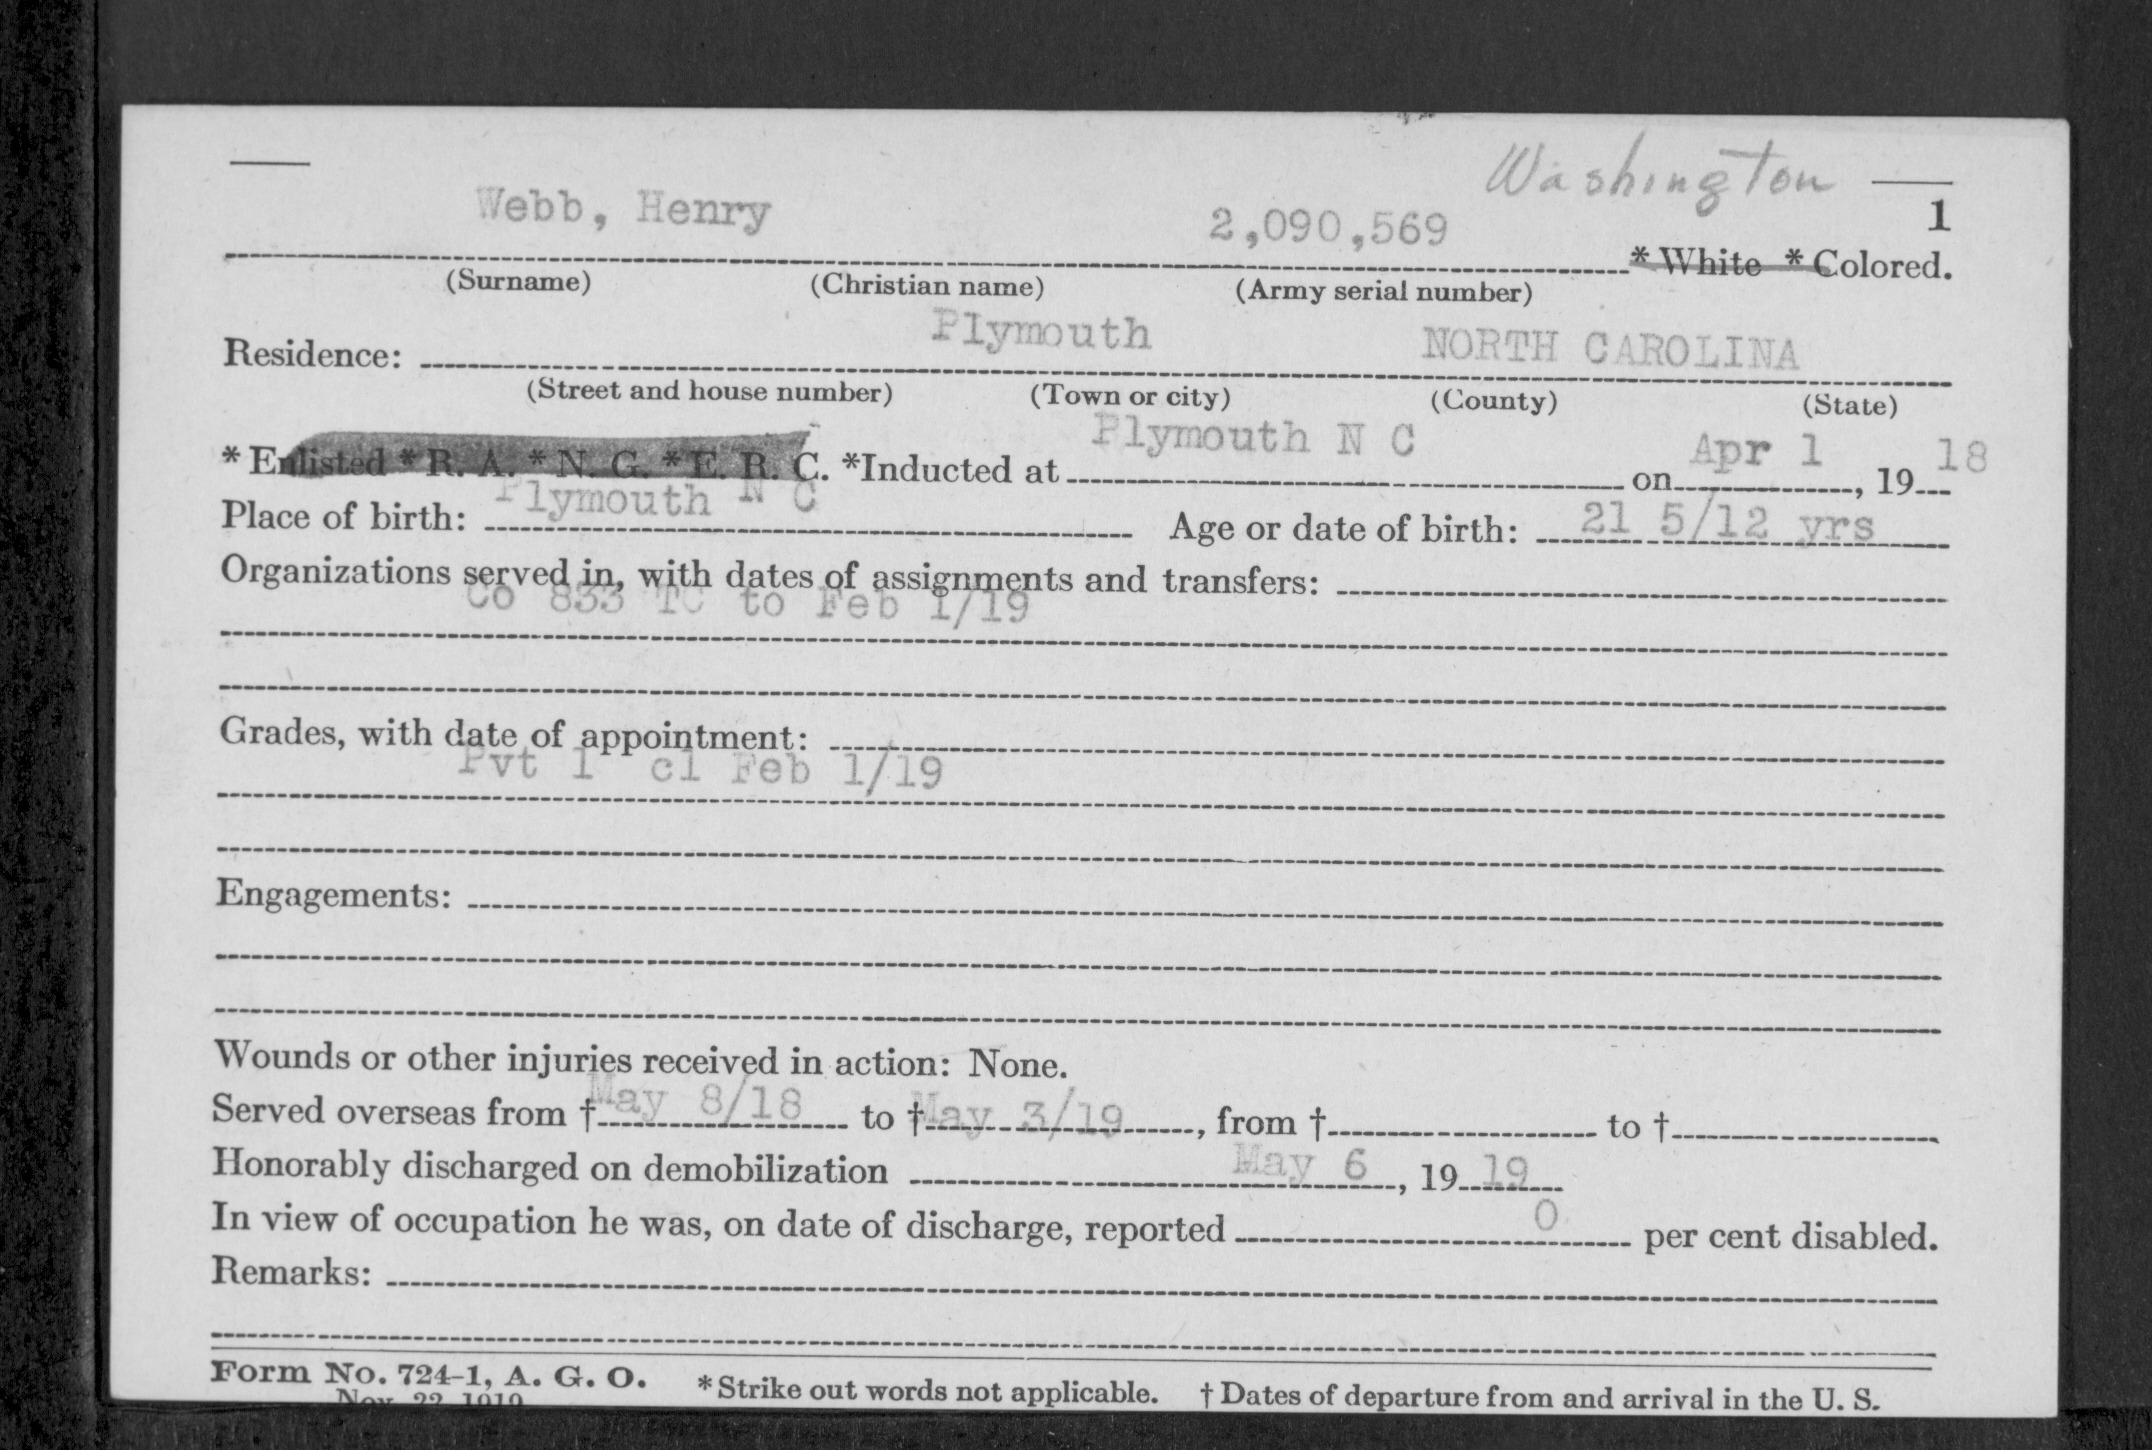 Washington
Webb, Henry 2,090,569 1
* White * Colored.
(Surname) (Christian name) (Army serial number)
Residence: Plymouth NORTH CAROLINA
(Street and house number) (Town or city) (County) (State)
* Enlisted * R. A. * N. G. * E. R. C. *Inducted at Plymouth N C on Apr 1, 19 18
Place of birth: Plymouth N C Age or date of birth: 21 5/12 yrs
Organizations served in, with dates of assignments and transfers:
Co 833 TC to Feb 1/19
Grades, with date of appointment:
Pvt 1 cl Feb 1/19
Engagements:
Wounds or other injuries received in action: None.
Served overseas from † May 8/18 to † May 3/19, from † to †
Honorably discharged on demobilization May 6, 19 19
In view of occupation he was, on date of discharge, reported 0 per cent disabled.
Remarks:
Form No. 724-1, A. G. O. * Strike out words not applicable. † Dates of departure from and arrival in the U. S.
Nov. 22, 1919